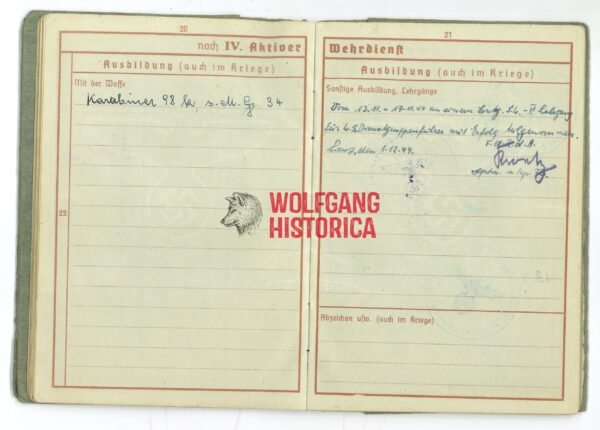 20
noch IV. Aktiver
Ausbildung (auch im Kriege)
Mit der Waffe
Karabiner 98 k, s. M. G. 34
22
WOLFGANG
HISTORICA
21
Wehrdienst
Ausbildung (auch im Kriege)
Sonstige Ausbildung, Lehrgänge
Vom 12.11. - 17.11.44 an einem Lehrgang
für mit Erfolg teilgenommen.
den 1.12.44.
Abzeichen usw. (auch im Kriege)